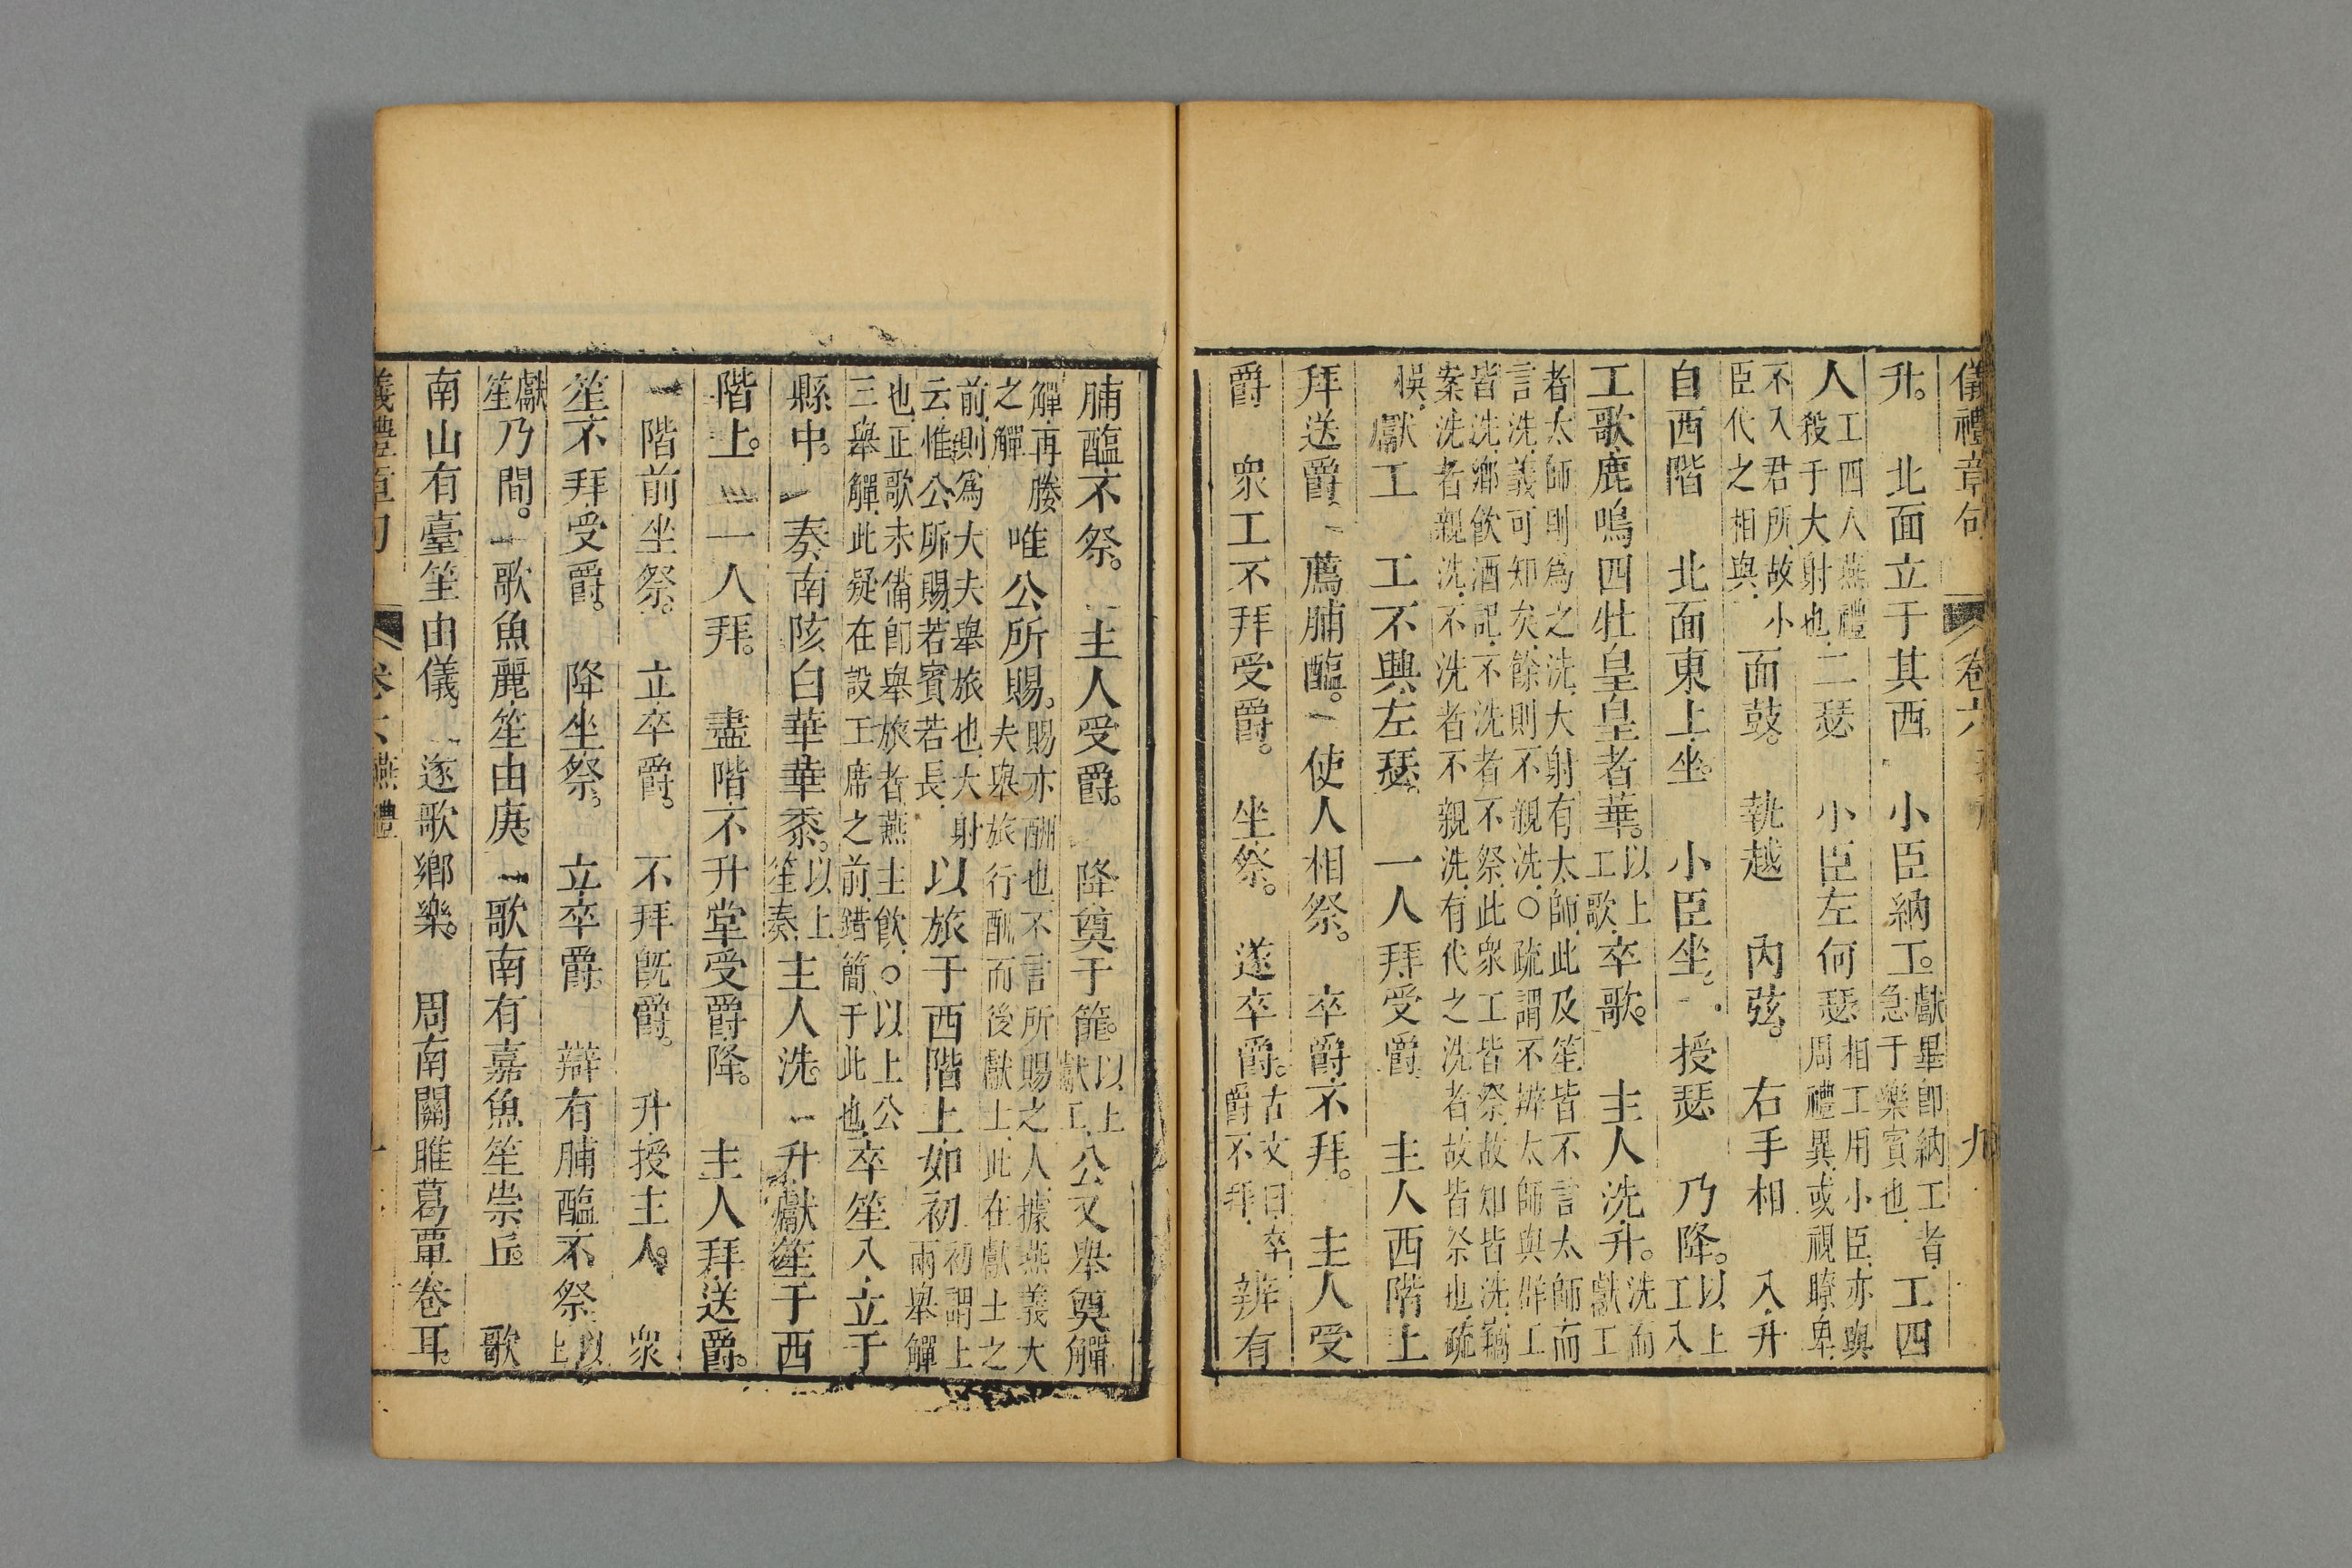 儀禮章句 卷六 九
升。 北面立于其西。 小臣納工。獻畢卽納工者急于樂賓也 工四
人工四人燕禮殺于大射也二瑟 小臣左何瑟相工用小臣亦與周禮異或視瞭卑
不入君所故小臣代之相與 面鼓。 執越 內弦。 右手相 入升
自西階 北面東上坐 小臣坐 授瑟 乃降。以上工入
工歌鹿鳴四牡皇皇者華。以上工歌 卒歌。 主人洗升。洗而獻工
者太師則爲之洗大射有太師此及笙皆不言太師而
言洗義可知矣餘則不親洗〇疏謂不辨太師與群工
皆洗鄉飲酒記不洗者不祭此衆工皆祭故知皆洗竊
案洗者親洗不洗者不親洗有代之洗者故皆祭也疏
悞。獻工 工不興左瑟 一人拜受爵 主人西階上
拜送爵 薦脯醢。 使人相祭。 卒爵不拜。 主人受
爵 衆工不拜受爵。 坐祭。 遂卒爵。古文曰卒爵不拜 辨有
脯醢不祭。 主人受爵。 降奠于篚。以上獻工 公又舉奠觶
觶再媵之觶 唯公所賜。賜亦酬也不言所賜之人據燕義大夫舉旅行酬而後獻士此在獻士之
前則爲大夫舉旅也大射云惟公所賜若賓若長 以旅于西階上如初初謂上兩舉觶
也正歌未備卽舉旅者燕主飲〇以上公三舉觶此疑在設工席之前錯簡于此也 卒笙入立于
縣中。 奏南陔白華華黍。以上笙奏 主人洗。 升獻笙于西
階上。 一人拜。 盡階不升堂受爵降。 主人拜送爵。
階前坐祭。 立卒爵。 不拜旣爵。 升授主人。 衆
笙不拜受爵。 降坐祭。 立卒爵。 辯有脯醢不祭以上
獻笙 乃間。 歌魚麗笙由庚。 歌南有嘉魚笙崇丘。 歌
南山有臺笙由儀。 遂歌鄉樂。 周南關雎葛覃卷耳。
儀禮章句 卷六燕禮